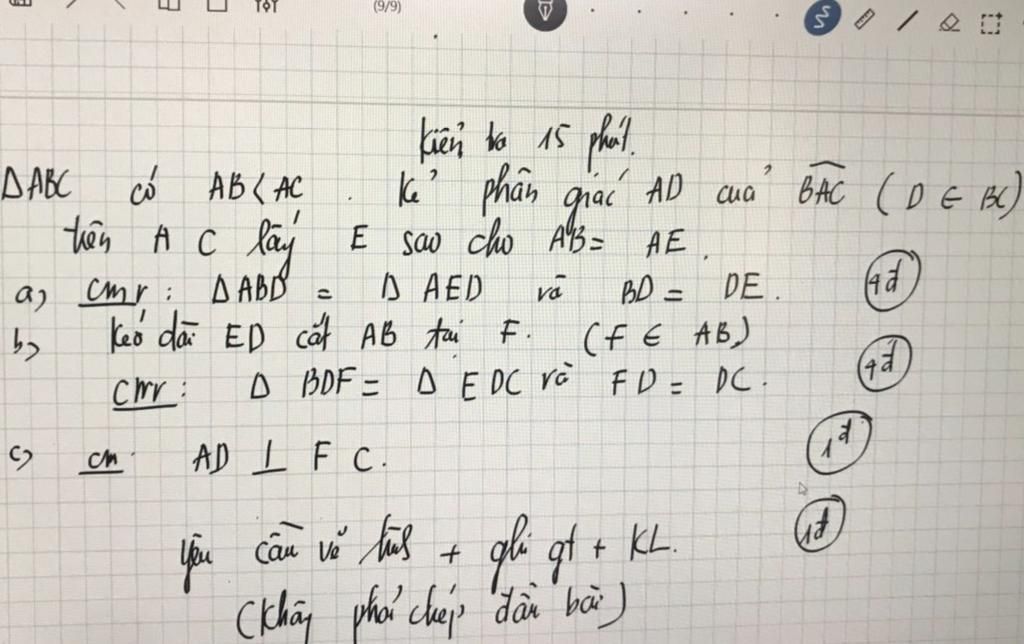 (9/9)
Kiểm tra 15 phút.
ΔABC có AB < AC . Kẻ phân giác AD của BAC ( D ∈ BC)
trên A C lấy E sao cho AB = AE .
a) cmr : ΔABD = Δ AED và BD = DE . 4đ
b) Kéo dài ED cắt AB tại F. (F ∈ AB)
cmr : Δ BDF = Δ EDC và FD = DC . 4đ
c) cm AD ⊥ F C . 1đ
yêu cầu vẽ hình + ghi gt + KL. 1đ
(không phải chép đầu bài)